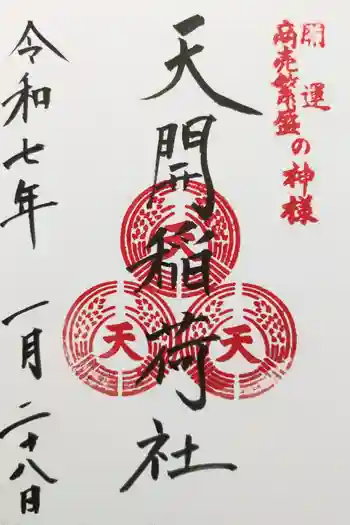 開運
商売繁盛の神様
天開稲荷社
天
天
天
令和七年 一月二十八日